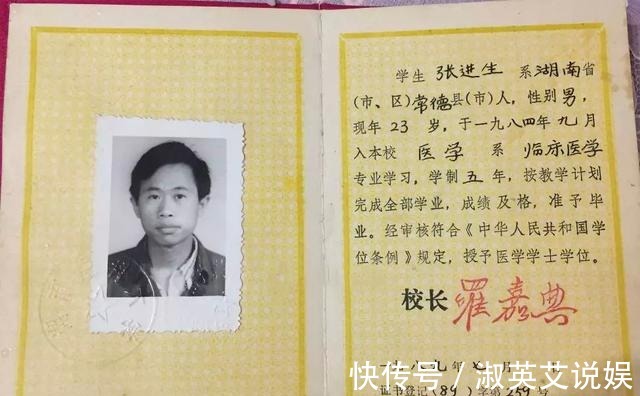 学生 张进生 系湖南省
(市、区)常德县(市)人，性别男，
现年 23 岁，于一九八四年九月
入本校 医学 系 临床医学
专业学习，学制五年，按教学计划
完成全部学业，成绩及格，准予毕
业。经审核符合《中华人民共和国学
位条例》规定，授予医学学士学位。
校长 罗嘉典
一九八九年七月
证书登记(89)字第259号
快传号 / 淑英艾说娱